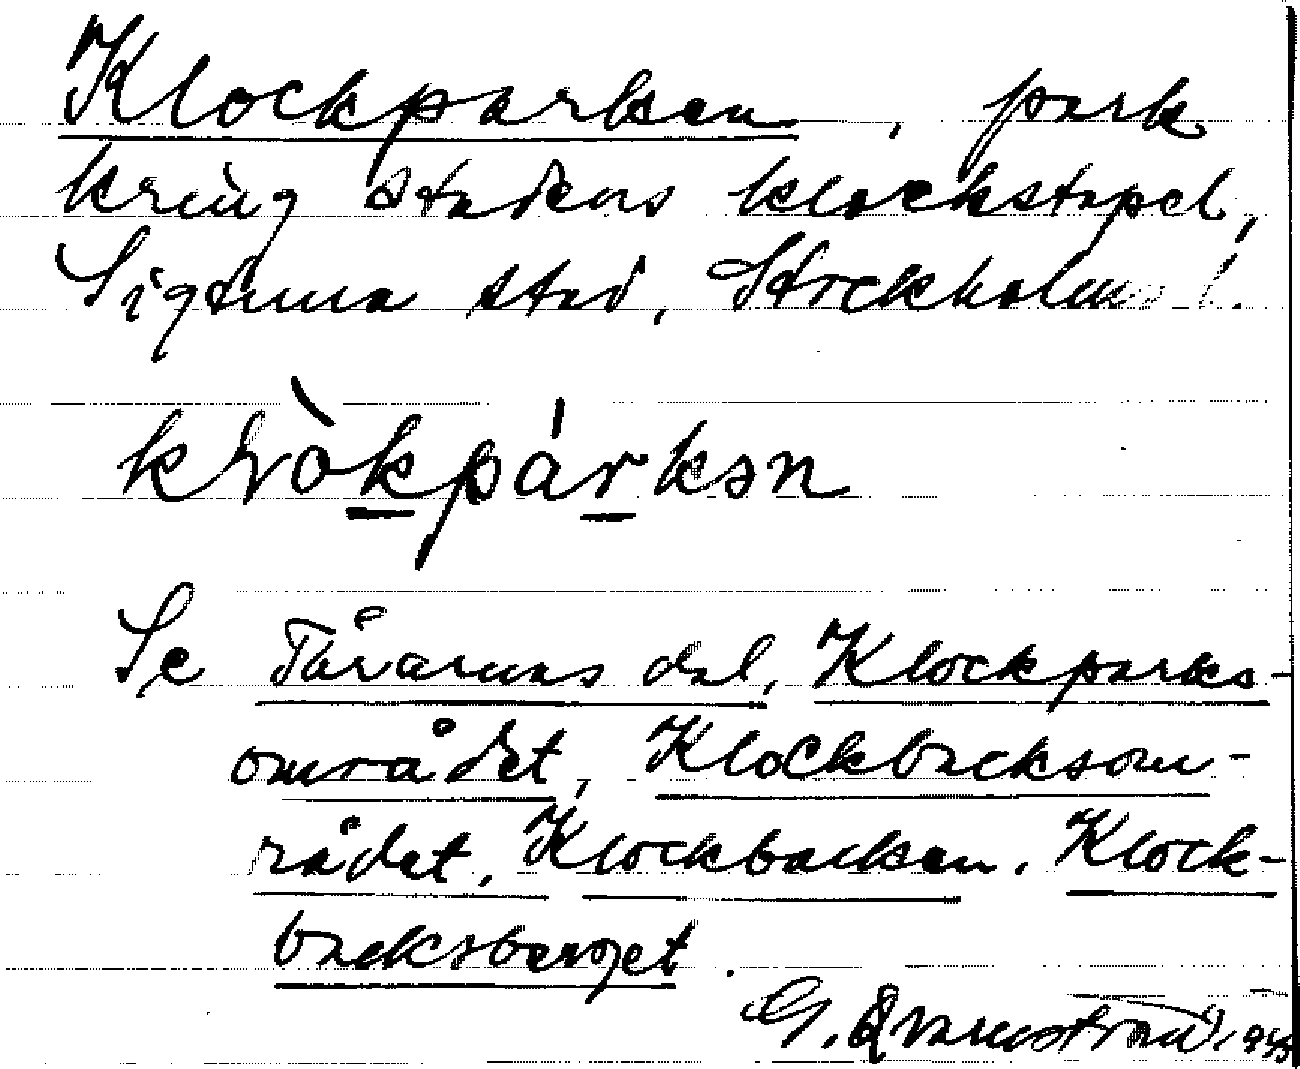 Klockparken, park
kring stadens klockstapel,
Sigtuna stad, Stockholms l.
klòkpárkən
Se Tårarnas dal, Klockparks-
området, Klockbacksom-
rådet, Klockbacken, Klock-
backsberget.
G. Qvarnström